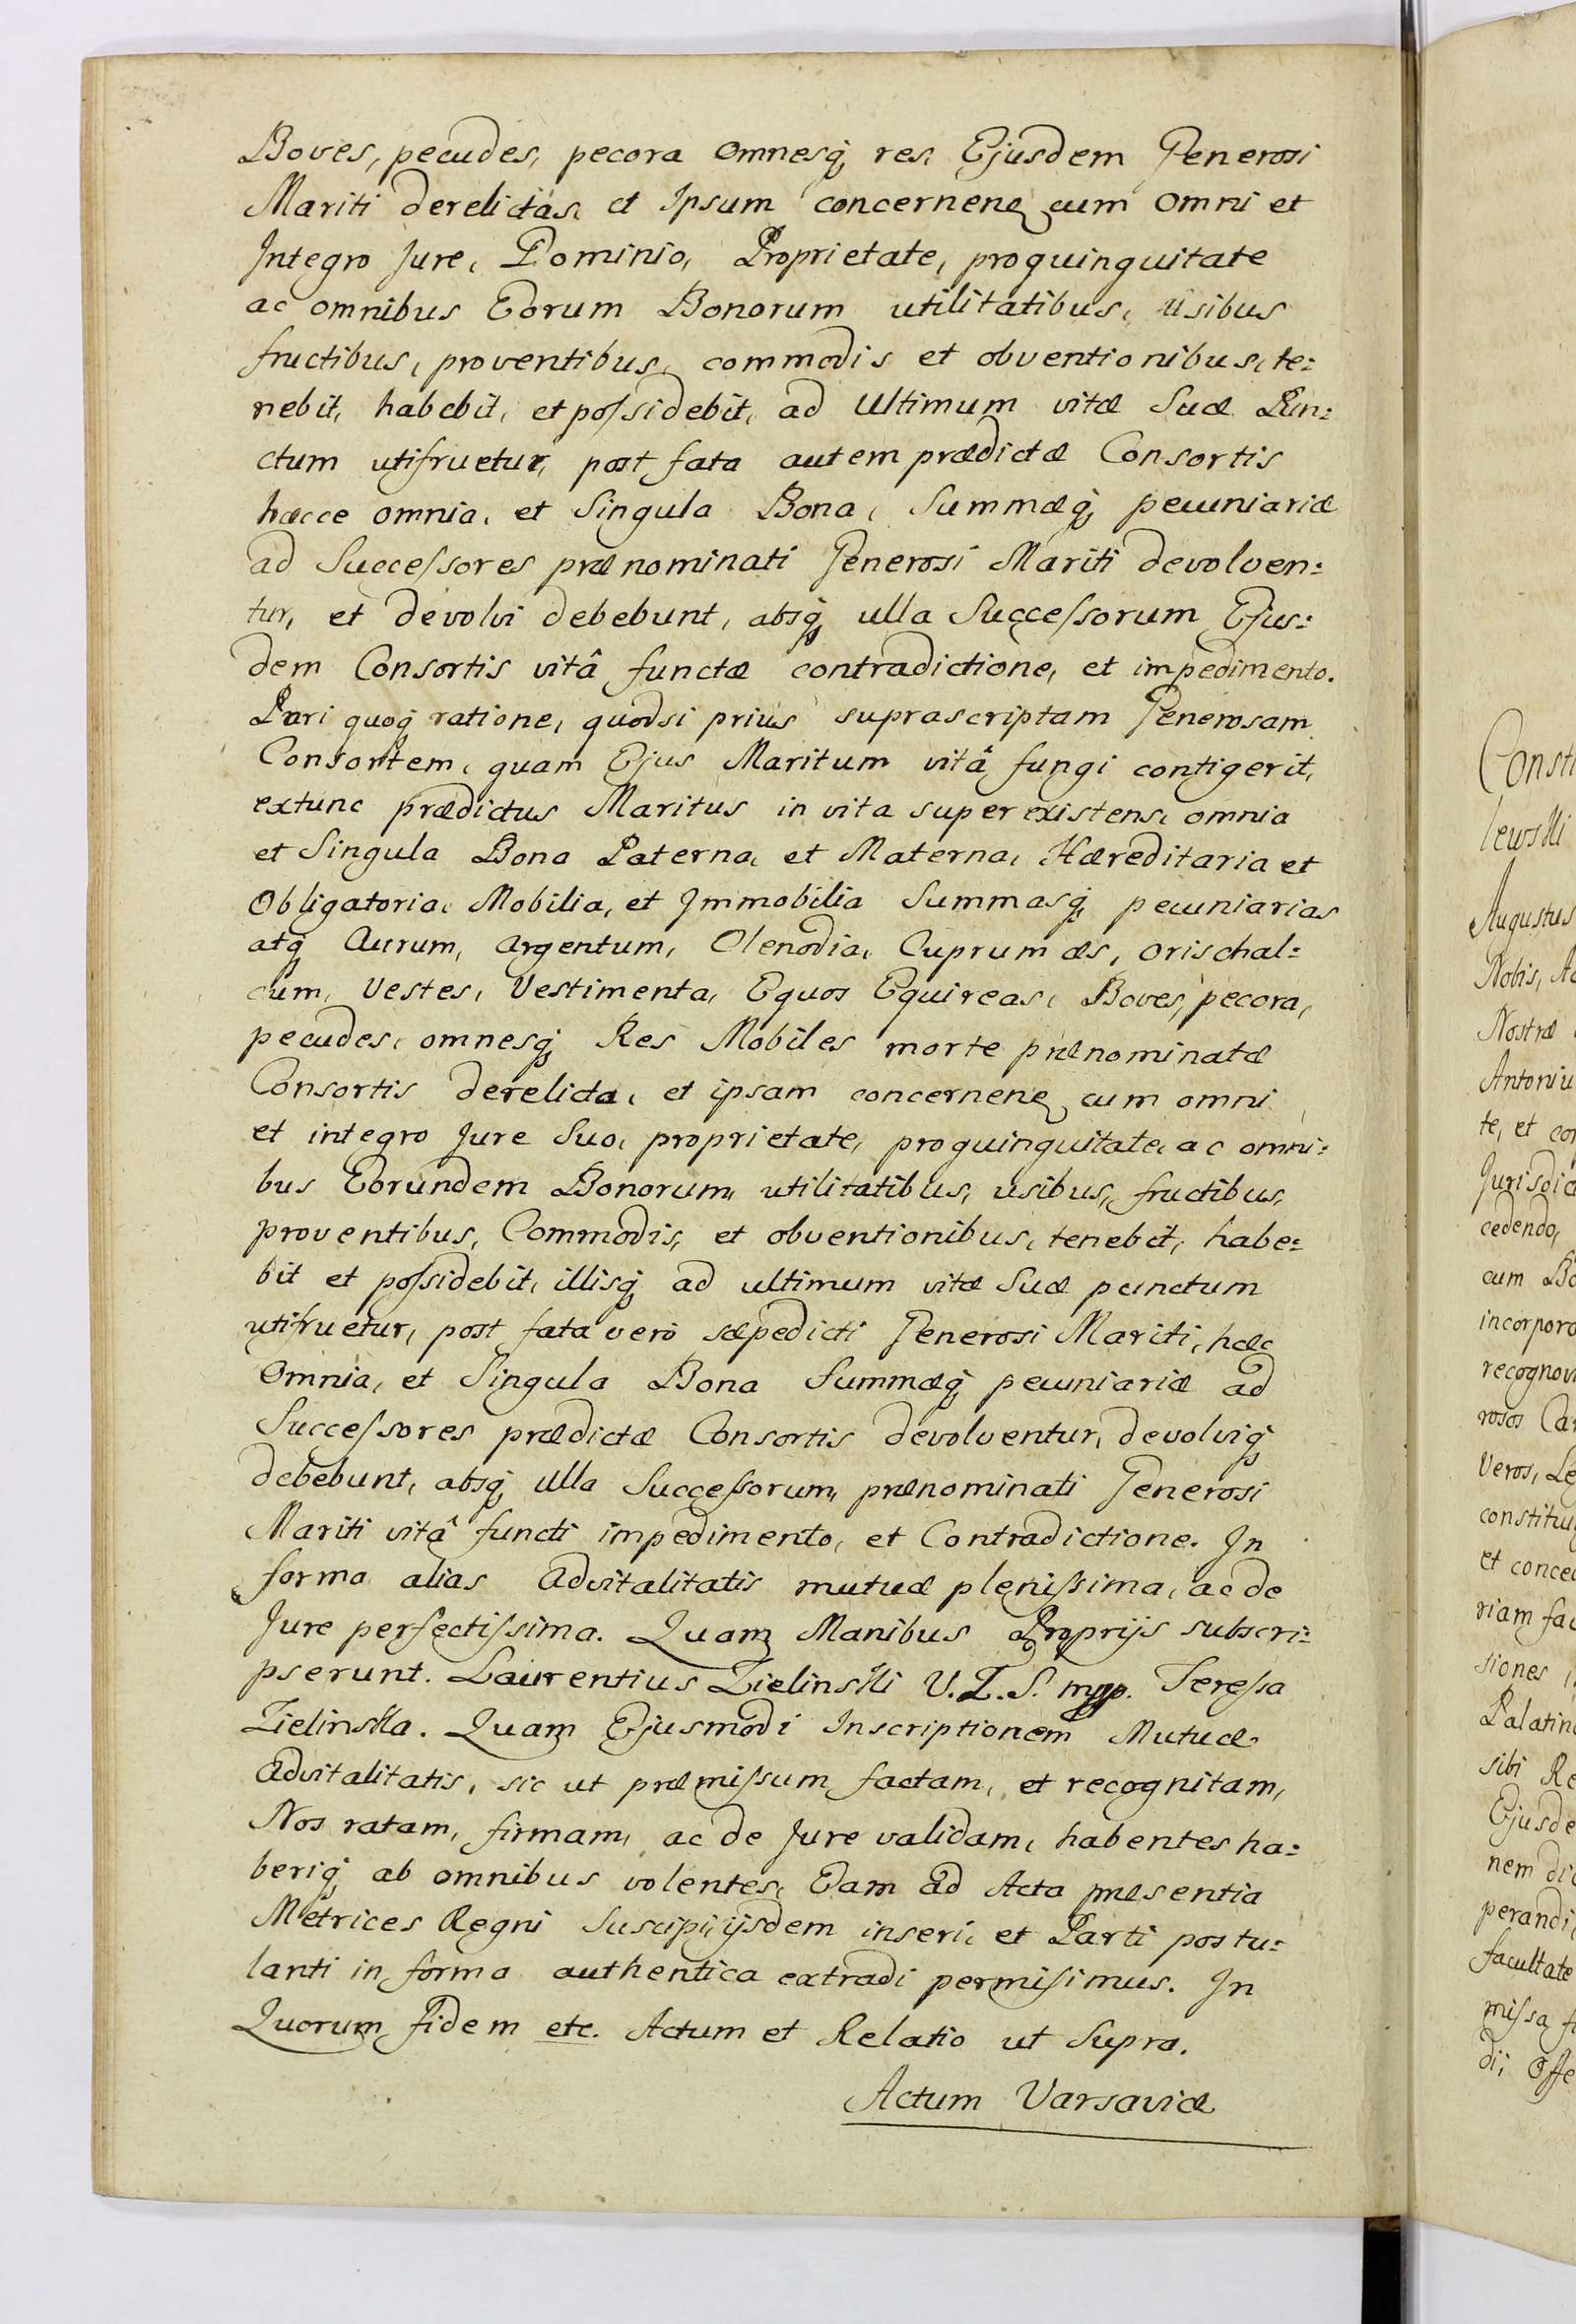 Boves, pecudes, pecora omnesq́ꝫ res, Ejusdem Generosi
Mariti derelictas, et Ipsum concernenꝫ cum omni et
Integro Jure, Dominio, Proprietate, proquinquitate
ac omnibus Eorum Bonorum utilitatibus, usibus
fructibus, proventibus, commodis et obventionibus, te:
nebit, habebit, et poſsidebit, ad Ultimum vitæ Suæ Pun:
ctum utifruetur, post fata autem prædictæ Consortis
hæcce omnia, et Singula Bona, Summæq́ꝫ pecuniariæ
ad Succeſsores prænominati Generosi Mariti devolven:
tur, et devolvi debebunt, absq́ꝫ ulla Succeſsorum Ejus:
dem Consortis vitâ functæ contradictione, et impedimento.
Pari quoq́ꝫ ratione, quodsi prius suprascriptam Generosam
Consortem, quam Ejus Maritum vitâ fungi contigerit,
extunc prædictus Maritus in vita superexistens, omnia
et Singula Bona Paterna, et Materna, Hæreditaria et
Obligatoria, Mobilia, et Immobilia Summasq́ꝫ pecuniarias
atq́ꝫ Aurum, Argentum, Clenodia, Cuprum æs, orischal:
cum, Vestes, Vestimenta, Equos Equireas, Boves, pecora,
pecudes, omnesq́ꝫ Res Mobiles morte prænominatæ
Consortis derelicta, et ipsam concernenꝫ cum omni
et integro Jure Suo, proprietate, proquinquitate, ac omni:
bus Eorundem Bonorum, utilitatibus, usibus, fructibus,
proventibus, Commodis, et obventionibus, tenebit, habe:
bit et poſsidebit, illisq́ꝫ ad ultimum vitæ Suæ punctum
utifruetur, post fata verò sæpedicti Generosi Mariti, hæc
Omnia, et Singula Bona Summæq́ꝫ pecuniariæ ad
Succeſsores prædictæ Consortis devolventur, devolviq́ꝫ
debebunt, absq́ꝫ ulla Succeſsorum, prænominati Generosi
Mariti vitâ functi impedimento, et Contradictione. In
forma alias Advitalitatis mutuæ pleniſsima, ac de
Jure perfectiſsima. Quam Manibus Proprijs subscri:
pserunt. Laurentius Zielinski U.Z.S. mpp. Tereſsa
Zielinska. Quam Ejusmodi Inscriptionem Mutuæ
Advitalitatis, sic ut præmiſsum factam, et recognitam,
Nos ratam, firmam, ac de Jure validam, habentes ha:
beriq́ꝫ ab omnibus volentes, Eam ad Acta præsentia
Metrices Regni Suscipi, ijsdem inseri, et Parti postu:
lanti in forma authentica extradi permiſimus. In
Quorum fidem etc. Actum et Relatio ut Supra.
Actum Varsaviæ
Consti
lewski
Augustus
Nobis, Ac
Nostræ
Antoniu
te, et con
Jurisdic
cedendo,
cum Bo
incorpora
recognov
rosos Ca
Veros, Le
constitu
et conce
riam fac
siones,
Palatin
sibi Re
Ejusde
nem di
perandi,
facultate
miſsa f
di; Offe